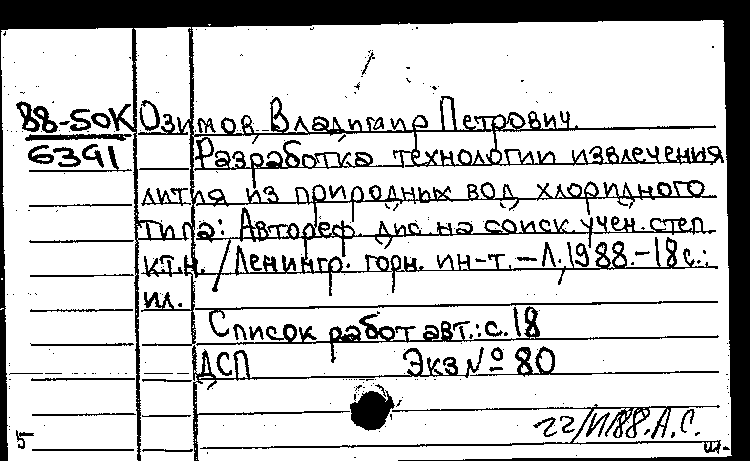 88-50К Озимов Владимир Петрович.
6391 Разработка технологии извлечения
лития из природных вод хлоридного
типа: Автореф. дис. на соиск. учен. степ.
к.т.н. / Ленингр. горн. ин-т. – Л., 1988. – 18 с.:
ил.
Список работ авт.: с. 18
ДСП Экз № 80
22/VI 88. А.С.
5